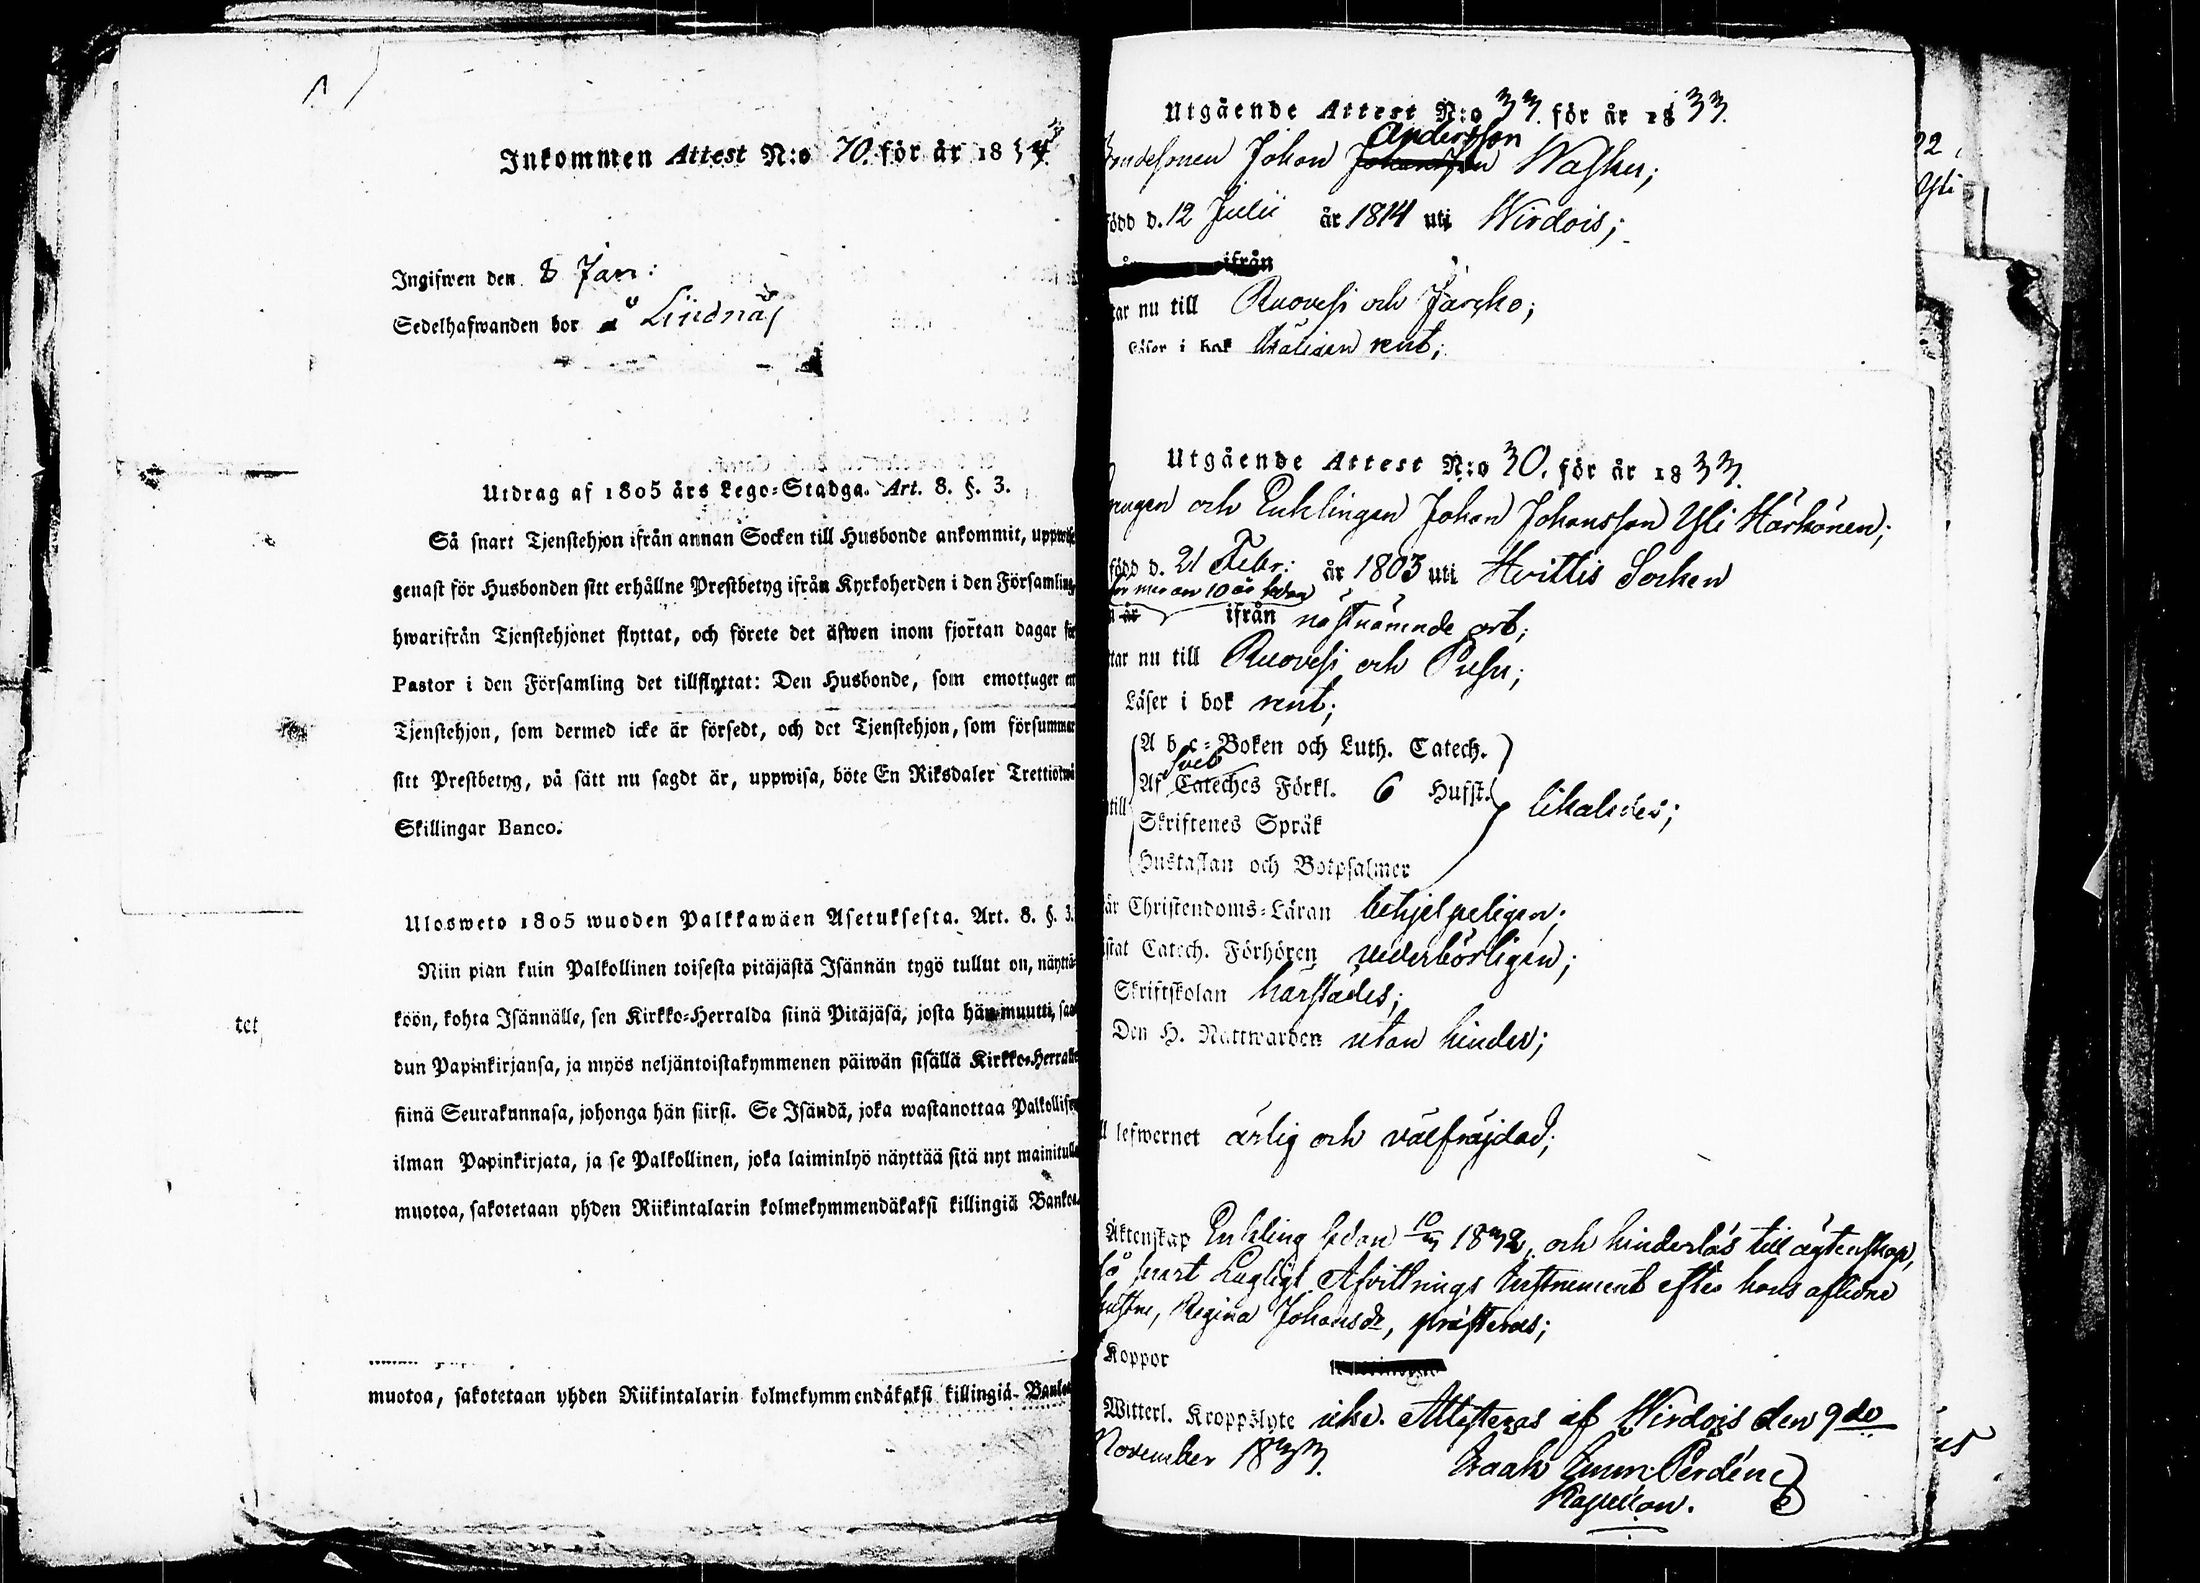 Inkommen Attest N:o 70. för år 18
Ingifwen den 8 Jan:
Sedelhafwanden bor å Lindnäs
Utdrag af 1805 års Lego-Stadga. Art. 8. §. 3.
Så snart Tjenstehjon ifrån annan Socken till Husbonde ankommit,
genast för Husbonden sitt erhållne Prestbetyg ifrån Kyrkoherden i den Församling,
hwarifrån Tjenstehjonet flyttat, och förete det äfwen inom fjortan dagar för
Pastor i den Församling det tillflyttat: Den Husbonde, som emottager ett
Tjenstehjon, som dermed icke är försedt, och det Tjenstehjon, som försummar
sitt Prestbetyg, på sätt nu sagdt är, uppwisa, böte En Riksdaler Trettiotwå
Skillingar Banco.
Ulosweto 1805 wuoden Palkkawäen Asetuksesta. Art. 8. §. 3.
Niin pian kuin Palkollinen toisesta pitäjästä Isännän tygö tullut on, näyttä-
köön, kohta Isännälle, sen Kirkko-Herralda siinä Pitäjäsä, josta hän muutti, saa-
dun Papinkirjansa, ja myös neljäntoistakymmenen päiwän sisällä Kirkko-Herralle
siinä Seurakunnasa, johonga hän siirsi. Se Isändä, joka wastanottaa Palkollisen
ilman Papinkirjata, ja se Palkollinen, joka laiminlyö näyttää sitä nyt mainitulla
muotoa, sakotetaan yhden Riikintalarin kolmekymmendäkaksi killingiä Bankoa.
muotoa, sakotetaan yhden Riikintalarin kolmekymmendäkaksi killingiä Bankoa
tet
Utgående Attest N:o 33. för år 1833.
Andersson
Johan Johansson Wasku;
född d. 12 Julii år 1814 uti Wirdois;
ifrån
tar nu till Ruovesi och Jäske;
Läser i bok rent;
Utgående Attest N:o 30. för år 1833.
och Enklingen Johan Johansson Yli Härkönen;
född d. 21 Febr: år 1803 uti Hvittis Socken
mer an 10 år sedan
år ifrån nästnämnde ort;
tar nu till Ruovesi och Pusu;
Läser i bok rent;
A b c-Boken och Luth. Catech.
Sveb
Af Cateches Förkl. 6 Hufst. likaledes;
till
Skriftenes Språk
Hustaflan och Botpsalmer
är Christendoms-Läran behjelpeligen;
istat Catech. Förhören vederbörligen;
Skriftskolan härstädes;
Den H. Nattwarden utan hinder;
ll lefwernet ärlig och välfräjdad;
Äktenskap Enkling sedan 10/3 1832, och hinderlös till ägtenskap,
så snart Lagligt Afvittrings Instrument efter hans aflidne
hustru, Regina Johansdr, prästeras;
Koppor
Witterl. Kroppslyte icke. Attesteras af Wirdois den 9de
November 1833.
Isaak Emm: Perdén
Kapellan.
22
Yli